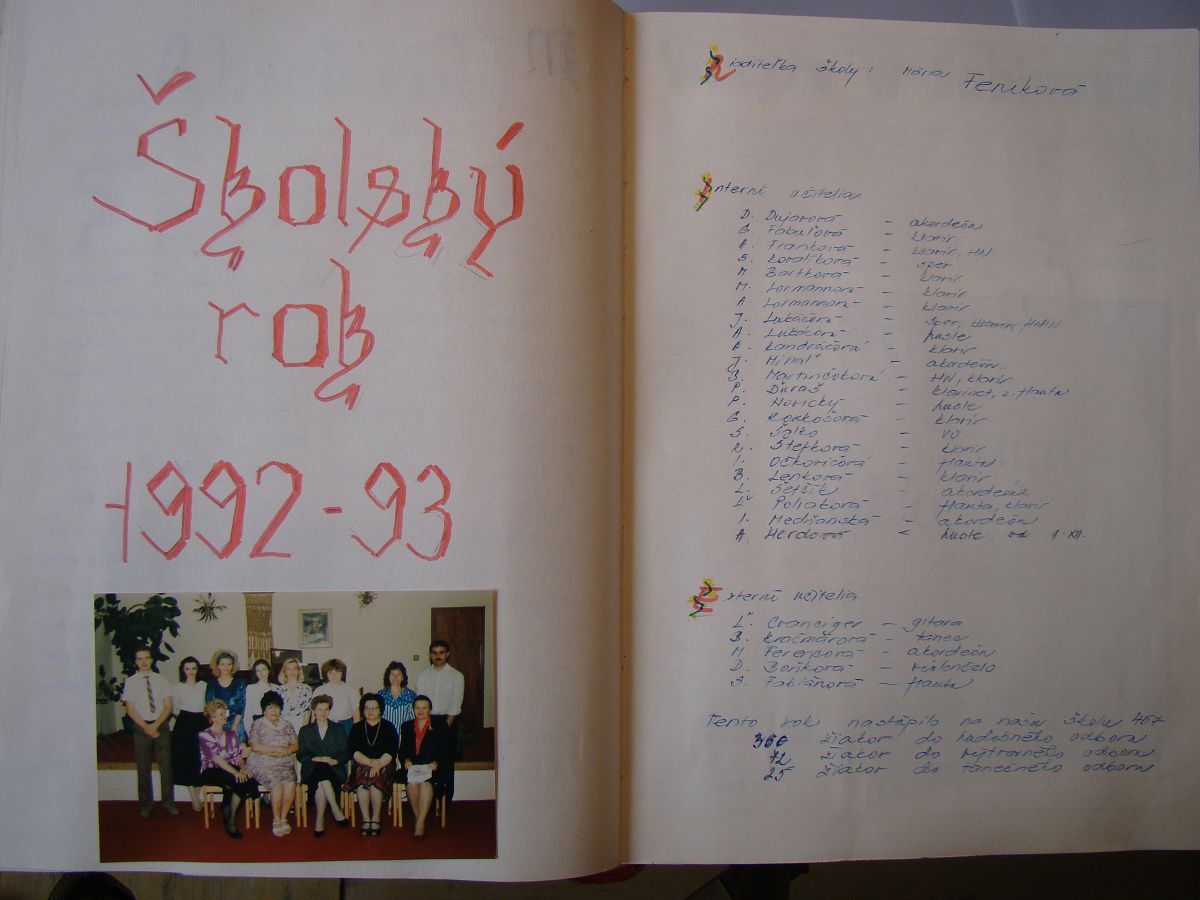 Školský
rok
1992-93
Riaditeľka školy: Mária Feniková
Interní učitelia
D. Dujavová - akordeón
G. Fabuľová - klavír
A. Franková - klavír, HN
S. Koralíková - spev
M. Bartková - klavír
M. Lormannová - klavír
A. Lormannová - klavír
J. Lukáčová - spev, klavír,
A. Lukáčová - husle
A. Kandráčová - klavír
J. Mihaľ - akordeón
B. Martinčoková - HN, klavír
P. Ďuraš - klarinet, z. flauta
P. Novický - husle
G. - klavír
S. Šalko - VO
R. Štefková - klavír
I. Očkovičová - flauta
B. Lenková - klavír
L. - akordeón
Ľ. Poliaková - flauta, klavír
I. Medňanská - akordeón
A. Herdová - husle od 1.XII.
Externí učitelia
Ľ. Cvanciger - gitara
B. Kračmárová - tanec
M. Ferencová - akordeón
D. Boňková - violončelo
S. Fabišňová - flauta
Tento rok nastúpilo na našu školu 457
360 žiakov do hudobného odboru
72 žiakov do výtvarného odboru
25 žiakov do tanečného odboru